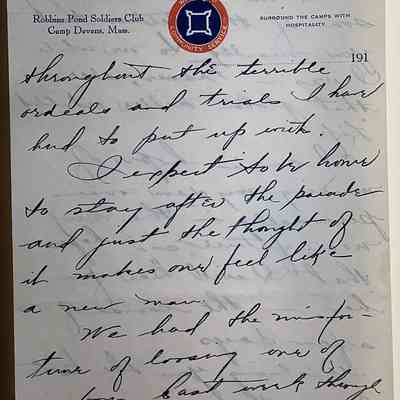 Robbins Pond Soldiers Club
Camp Devens, Mass.
COMMUNITY SERVICE
SURROUND THE CAMPS WITH
HOSPITALITY.
191
throughout the terrible
ordeals and trials I have
had to put up with.
I expect to be home
to stay after the parade
and just the thought of
it makes one feel like
a new man.
We had the misfor-
tune of loosing one of
last week through